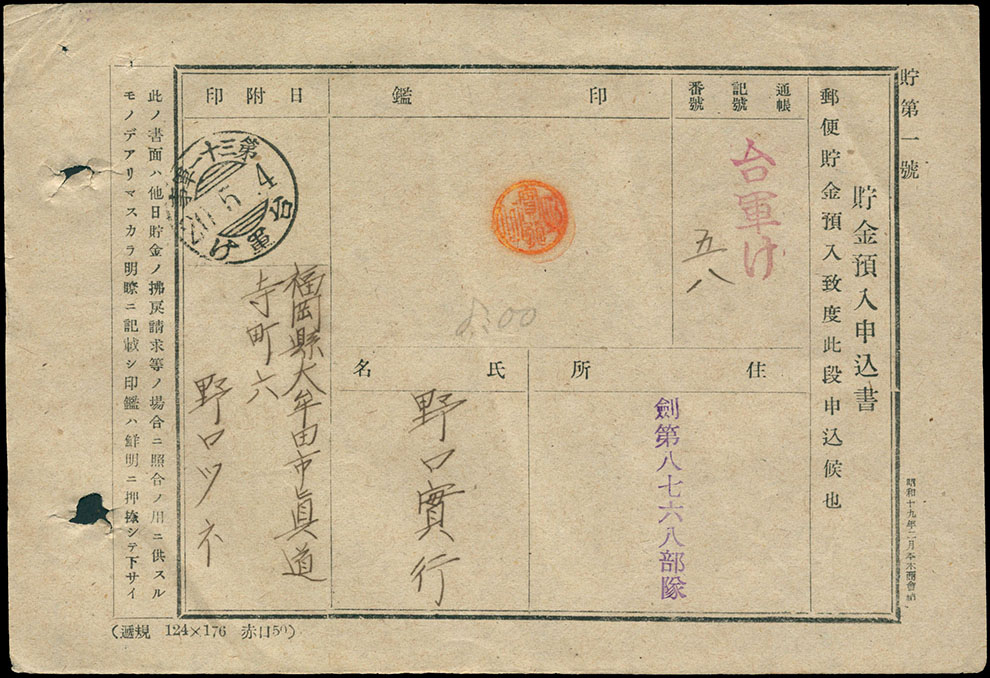 貯第一號
貯金預入申込書
郵便貯金預入致度此段申込候也
通帳
記號
番號
台軍け
五八
印鑑
日附印
第三十一野
20.5.4
台軍け
8:00
住所
劍第八七六八部隊
氏名
野口實行
福岡縣大牟田市眞道
寺町六
野口ツネ
此ノ書面ハ他日貯金ノ拂戾請求等ノ場合ニ照合ノ用ニ供スル
モノデアリマスカラ明瞭ニ記載シ印鑑ハ鮮明ニ押捺シテ下サイ
昭和十九年二月
(遞規 124×176 赤口50)